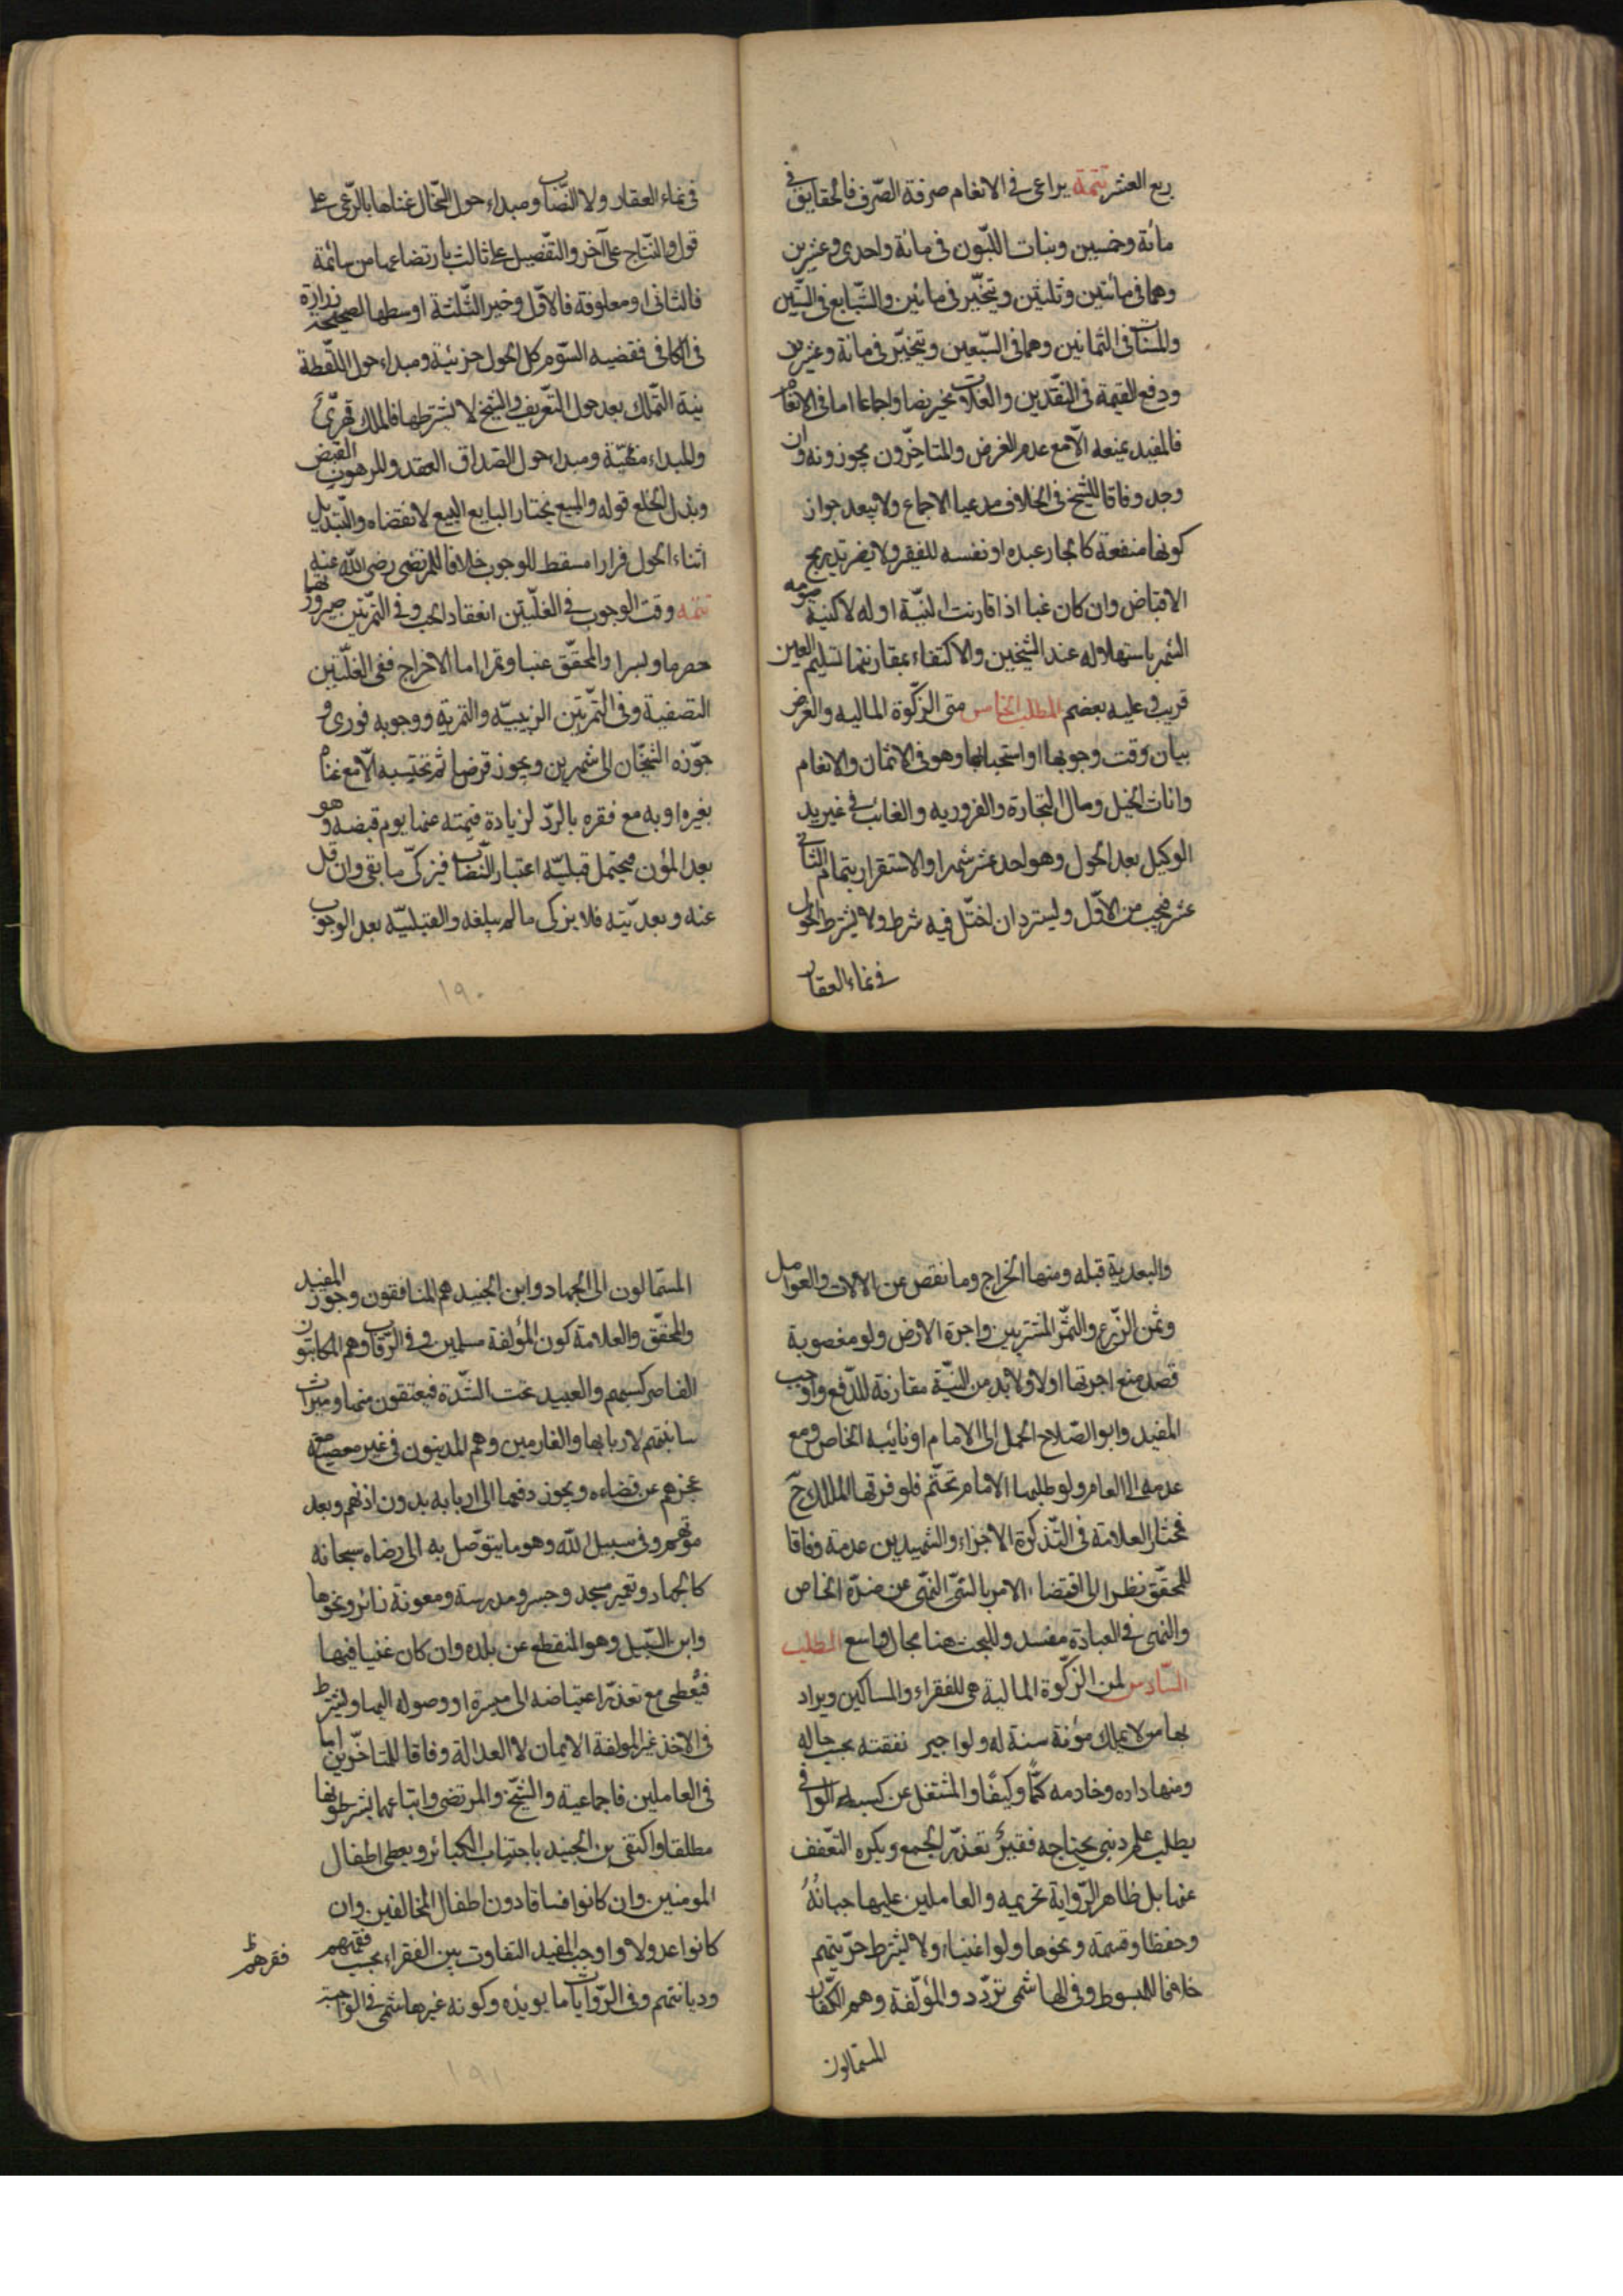 ربع العشر تتمة يراعى فى الانعام صرفة الصّرف فالحقايق فى
مائة وخمسين وبنات اللبّون فى مائة واحدى وعشرين
وهما فى مائتين وثلثين ويتخيّر فى مائتين والتّبايع فى السّتين
والمسنّات فى الثمانين وهما فى السّبعين ويتخيّر فى مائة وعشرين
ودفع القيمة فى النّقدين والغلّات مخير نصا واجماعا اما فى الانعام
فالمفيد يمنعه الّا مع عدم الفرض والمتاخّرون يجوزونه وان
وجد وفاقا للشيخ فى الخلاف مدعيا الاجماع ولا يبعد جواز
كونها منفعة كايجار عبده او نفسه للفقير ولا يضر تدريج
الاقباض وان كان غبا اذا قارنت النيّة اوله لا كنية صومه
الشهر باستهلاله عند الشيخين والاكتفاء بمقارنتها تسليم العين
قريب وعليه بعضهم المطلب الخامس متى الزّكوة الماليه والغرض
بيان وقت وجوبها او استحبابها وهو فى الاثمان والانعام
واناث الخيل ومال التجارة والغائب فى غير يد
الوكيل بعد الحول وهو احد عشر شهرا والاستقرار بتمام الثانى
عشر فيجب من الاوّل ويسترد ان اختلّ فيه شرط ولا يشترط الحول
فى نماء العقار
فى نماء العقار ولا النّصاب ومبداء حول السّخال غنائها بالرّعى على
قول والنّتاج على آخر والتّفصيل على ثالث بارتضاعها من سائمة
فالثانى او معلوفة فالاوّل وخير الثّلثة اوسطها لصحيحة زرارة
فى الكافى فقضيه السّوم كل الحول جزئية ومبداء حول اللّقطة
نية التّملك بعد حول التّعريف والشيخ لا يشترطها فالملك قهرّىّ
والمبداء منتهيّة ومبداء حول الصّداق العقد والمرهون القبض
وبذل الخلع قوله والمبيع بخيار البايع البيع لا انقضاه والتّبديل
اثناء الحول فرارا مسقط للوجوب خلافا للمرتضى رضى اللّه عنه
تتمه وقت الوجوب فى الغلّتين انعقاد الحب وفى التمرّتين صيرورتها
حصرما وبسرا والمحقّق عنبا وتمرا اما الاخراج ففى الغلّتين
التصفية وفى التمّرتين الزبيبيّه والتمريّه ووجوبه فورى و
جوّزه الشيّخان الى شهرين ويجوز قرضها ثم تحتسبه الّا مع غناه
بغيرها وبه مع فقره بالرّد لزيادة قيمته عنها يوم قبضه وهو
بعد المؤن فيحتمل قبليّه اعتبار النّصاب فيزكّى ما بقى وان قل
عنه وبعديّته فلا يزكى مالم يبلغه والقبليّه بعد الوجوب
١٩٠
والبعديه قبله ومنها الخراج وما نقص عن الآلات والعوامل
وثمن الزّرع والثمّر المشتريين واجرة الارض ولو مغصوبة
قصد منع اجرتها اولا ولابّد من النيّة مقارنة للدّفع واوجب
المفيد وابو الصّلاح الحمل الى الامام او نائبه الخاص ومع
عدمه الى العام ولو طلبها الامام تحتّم فلو فرقها المالك ح
فمختار العلامة فى التّذكرة الاجزاء والشهيدين عدمه وفاقا
للمحقّق نظرا الى اقتضاء الامر بالشىّ النّهى عن ضدّه الخاص
والنهى فى العبادة مفسد وللبحث هنا مجال واسع المطلب
السّادس لمن الزّكوة المالية هى للفقراء والمساكين ويراد
بها من لا يملك مؤنة سنة له ولواجبى نفقته بحسب حاله
ومنها داره وخادمه كمًّا وكيفًا والمشتغل عن كسبه الوافى
بطلب علم دينى يحتاجه فقيرٌ تعذّر الجمع ويكره التّعفف
عنها بل ظاهر الرّواية تحريمه والعاملين عليها جبايةُ
وحفظا وقسمة ونحوها ولو اغنياء ولا يشترط حرّيتهم
خلافا للمبسوط وفى الهاشمى تردّد والمؤلّفة وهم الكفّار
المستمالون
المستمالون الى الجهاد وابن الجنيد هم المنافقون وجوز المفيد
والمحقّق والعلامة كون المؤلفة مسلمين وفى الرّقاب وهم المكاتبون
القاصر كسبهم والعبيد تحت الشّدة فيعتقون منها وميراث
سائبتهم لاربابها والغارمين وهم المدينون فى غير معصية مع
عجزهم عن قضاءه ويجوز دفعها الى اربابه بدون اذنهم وبعد
موتهم وفى سبيل اللّه وهو ما يتوصّل به الى رضاه سبحانه
كالجهاد وتعمير مسجد وجسر ومدرسة ومعونة زائر ونحوها
وابن السّبيل وهو المنقطع عن بلده وان كان غنيا فيها
فيُعطى مع تعذّر اعتياضه الى ميسرة او وصوله اليها ويشترط
فى الاخذ غير المؤلفة الايمان لا العدالة وفاقا للمتاخّرين اما
فى العاملين فاجماعية والشّيخ والمرتضى واتباعهما يشترطونها
مطلقا واكتفى ابن الجنيد باجتناب الكبائر ويعطى اطفال
المومنين وان كانوا فساقا دون اطفال المخالفين وان
كانوا عدولا واوجب المفيد التفاوت بين الفقراء بحسب فقههم
فقرهم ظ
وديانتهم وفى الرّوايات ما يويّده وكونه غير هاشمى فى الواجبة
١٩١